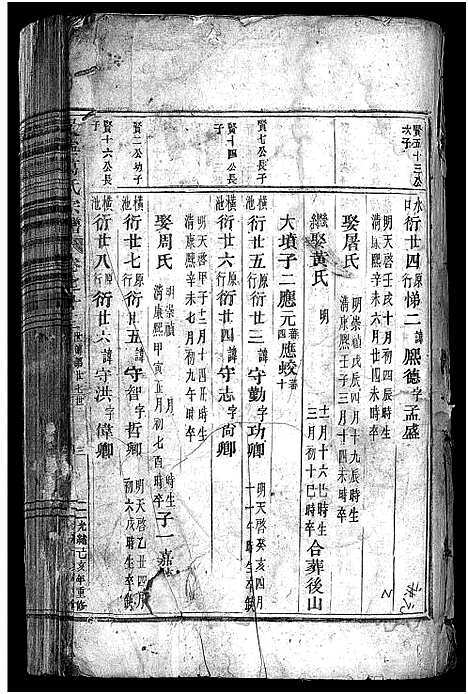 賢五十三公次子
水口衍廿四原行悌二諱熙德字孟盛
明天啓壬戌十月初四辰時生
清康熙辛未六月廿四未時卒
娶屠氏
明崇禎戊辰四月十九辰時生
清康熙壬子三月十四未時卒
繼娶黃氏
明 十一月十六巳時生
三月初十巳時卒
合葬後山
大墳子二應元蕃四應蛟蕃十
賢七公長子
橫池衍廿五原行衍廿三諱守勤字功卿
明天啓癸亥四月
賢十四公長子
衍廿六原行衍廿四諱守志字尚卿
明天啓甲子十二月十四丑時生
清康熙辛未七月初九未時卒
娶周氏
明崇禎 月 時生
清康熙甲寅五月初七酉時卒
子一嘉
賢二公幼子
橫池衍廿七原行衍廿五諱守智字哲卿
明天啓乙丑四月
初六戌時生卒缺
賢十六公長子
橫池衍廿八原行衍廿六諱守洪字偉卿
三
光緒己亥年重修